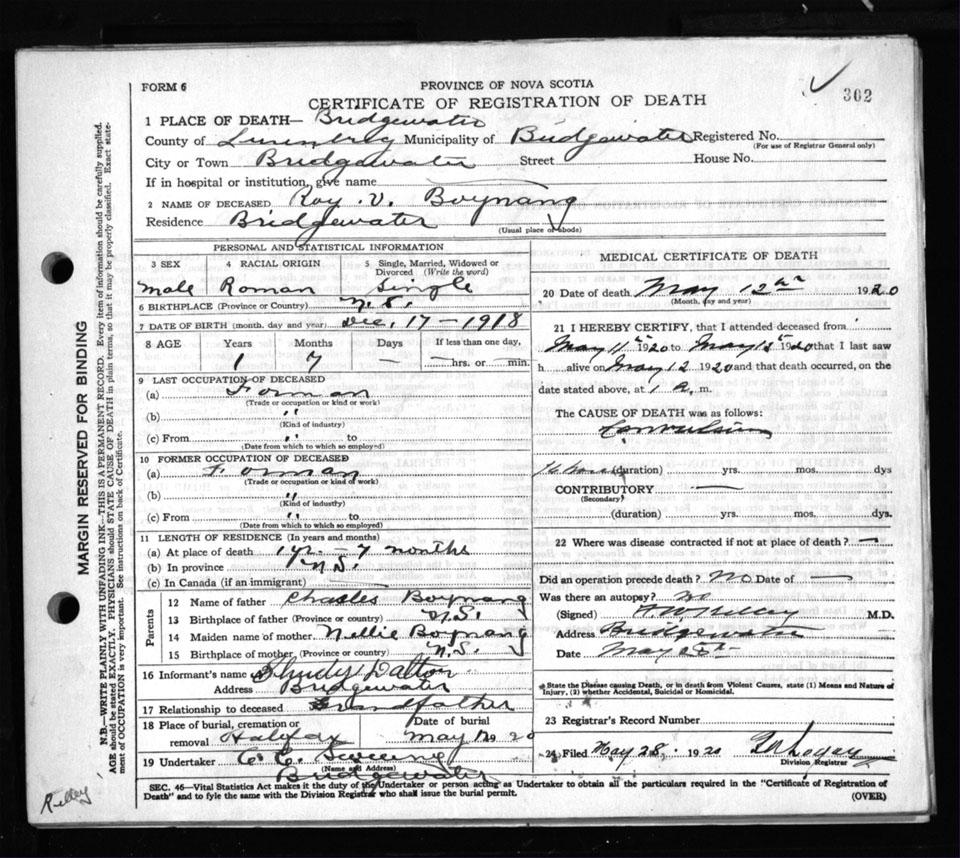 FORM 6
PROVINCE OF NOVA SCOTIA
302
CERTIFICATE OF REGISTRATION OF DEATH
1 PLACE OF DEATH— Bridgewater
County of Lunenburg Municipality of Bridgewater Registered No.
(For use of Registrar General only)
City or Town Bridgewater Street House No.
If in hospital or institution, give name
2 NAME OF DECEASED Roy V. Boynang
Residence Bridgewater
(Usual place of abode)
PERSONAL AND STATISTICAL INFORMATION
3 SEX 4 RACIAL ORIGIN 5 Single, Married, Widowed or Divorced (Write the word)
Male Roman Single
6 BIRTHPLACE (Province or Country) N.S.
7 DATE OF BIRTH (month, day and year) Dec, 17 - 1918
8 AGE Years Months Days If less than one day,
1 7 — hrs. or min.
9 LAST OCCUPATION OF DECEASED
(a) Forman
(Trade or occupation or kind or work)
(b) "
(Kind of industry)
(c) From " to
(Date from which to which so employed)
10 FORMER OCCUPATION OF DECEASED
(a) Forman
(Trade or occupation or kind of work)
(b) "
(Kind of industry)
(c) From " to
(Date from which to which so employed)
11 LENGTH OF RESIDENCE (In years and months)
(a) At place of death 1 yr. - 7 months
(b) In province N.S.
(c) In Canada (if an immigrant)
Parents
12 Name of father Charles Boynang
13 Birthplace of father (Province or country) N.S.
14 Maiden name of mother Nellie Boynang
15 Birthplace of mother (Province or country) N.S.
16 Informant's name Dalton
Address Bridgewater
17 Relationship to deceased Grandfather
18 Place of burial, cremation or removal Halifax
Date of burial May 1920
19 Undertaker C. E.
(Name and Address)
Bridgewater
MEDICAL CERTIFICATE OF DEATH
20 Date of death May 12th 1920
(Month, day and year)
21 I HEREBY CERTIFY, that I attended deceased from
May 11th 1920 to May 1920 that I last saw
h alive on May 12 1920 and that death occurred, on the
date stated above, at 1 a. m.
The CAUSE OF DEATH was as follows:
Convulsions
(duration) yrs. mos. dys
CONTRIBUTORY —
(Secondary)
(duration) yrs. mos. dys.
22 Where was disease contracted if not at place of death? —
Did an operation precede death? No Date of —
Was there an autopsy? no
(Signed) Kelley M.D.
Address Bridgewater
Date May
State the Disease causing Death, or in death from Violent Causes, state (1) Means and Nature of Injury, (2) whether Accidental, Suicidal or Homicidal.
23 Registrar's Record Number
24 Filed May 28 1920
Division Registrar
SEC. 46—Vital Statistics Act makes it the duty of the Undertaker or person acting as Undertaker to obtain all the particulars required in the "Certificate of Registration of
Death" and to fyle the same with the Division Registrar who shall issue the burial permit. (OVER)
MARGIN RESERVED FOR BINDING
N.B.—WRITE PLAINLY WITH UNFADING INK—THIS IS A PERMANENT RECORD. Every item of information should be carefully supplied.
AGE should be stated EXACTLY. PHYSICIANS should STATE CAUSE OF DEATH in plain terms, so that it may be properly classified. Exact statement of OCCUPATION is very important. See instructions on back of Certificate.
Kelley